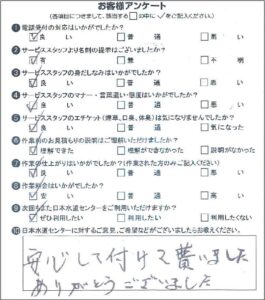 お客様アンケート
(各項目につきまして、該当する□の中に✓をご記入ください。)
❶電話受付の対応はいかがでしたか?
☑良い □普通 □悪い
❷サービススタッフより名刺の提示はございましたか?
☑有 □無 □不明
❸サービススタッフの身だしなみはいかがでしたか?
☑良い □普通 □悪い
❹サービススタッフのマナー・言葉遣い・態度はいかがでしたか?
☑良い □普通 □悪い
❺サービススタッフのエチケット(煙草、口臭、体臭)は気になりませんでしたか?
☑良い □普通 □気になった
❻作業前のお見積もりの説明はご理解いただけましたか?
☑理解できた □理解ができなかった □説明がなかった
❼作業の仕上がりはいかがでしたか?(作業された方のみご記入ください)
☑良い □普通 □悪い
❽作業料金はいかがでしたか?
☑安い □普通 □高い
❾次回もまた日本水道センターをご利用いただけますか?
☑ぜひ利用したい □利用したい □利用したくない
❿日本水道センターに対するご意見、ご希望などがございましたらお答えください。
安心して付けて貰いました
ありがとうございました